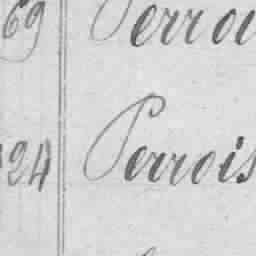 69 Perroi
24 Perrois